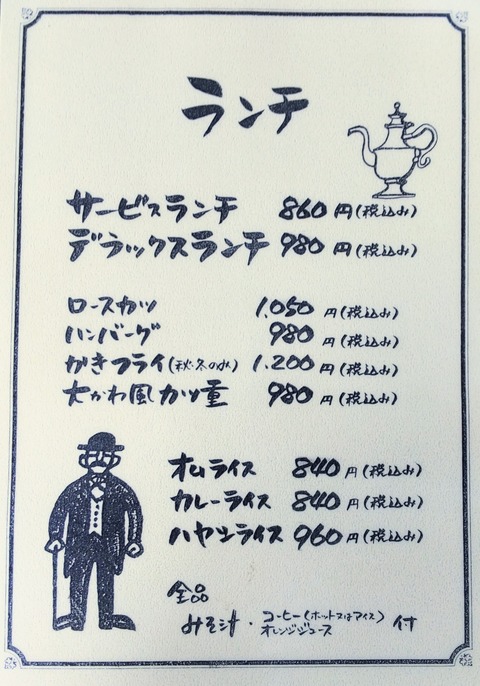 ランチ
サービスランチ 860円(税込み)
デラックスランチ 980円(税込み)
ロースカツ 1.050円(税込み)
ハンバーグ 980円(税込み)
かきフライ(秋・冬のみ) 1.200円(税込み)
大かわ風カツ重 980円(税込み)
オムライス 840円(税込み)
カレーライス 840円(税込み)
ハヤシライス 960円(税込み)
全品
みそ汁・コーヒー(ホット又はアイス)
オレンジジュース 付